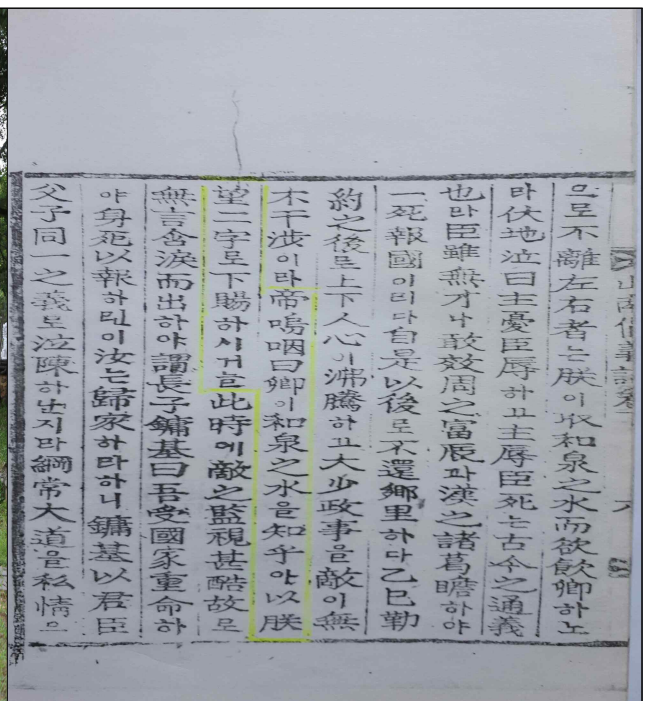 山南倡義誌卷
八
으로不離左右者는朕이取和泉之水而欲飮卿하노
라伏地泣曰主憂臣辱하고主辱臣死는古今之通義
也라臣雖無才나敢效周之富辰과漢之諸葛瞻하야
一死報國이리다自是以後로不還鄕里하다乙巳勒
約之後로上下人心이沸騰하고大少政事을敵이無
不干涉이라帝嗚咽曰卿이和泉之水을知乎아以朕
望二字로下賜하시거늘此時에敵之監視甚酷故로
無言含淚而出하야謂長子鏞基曰吾受國家重命하
야身死以報하린이汝는歸家하라하니鏞基以君臣
父子同一之義로泣陳하난지라綱常大道을私情으